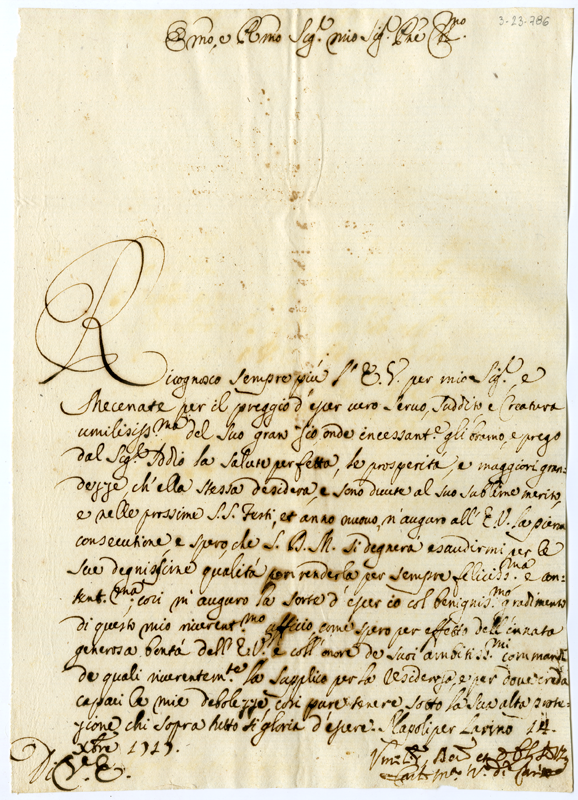 3-23-786
Emo, e Rmo Sig.r mio Sig.r Pne Col.mo
Ricognosco sempre più l'E. V. per mio Sig.r, e
Mecenate per il preggio d'esser vero Servo, Suddito e Creatura
umilisiss.ma del suo gran Zio onde incessant.e gli bramo, e prego
dal Sig.r Iddio la salute perfetta, le prosperità, e maggiori gran-
dezze ch'ella stessa desidera, e sono dovute al suo sublime merito,
e nelle prossime S.S. Feste, et anno nuovo, n'auguro all'E.V. la piena
consecutione e spero che S. D. M. si degnerà esaudirmi per le
sue degnissime qualità per renderla per sempre feliciss.ma e con-
tent.ma, così m'auguro la sorte d'esser io col benigniss.mo gradimento
di questo mio riverent.mo ufficio, come spero per effetto dell'innata
generosa bontà dell'E.V. e coll'onore de suoi ambitiss.mi commandi
de quali riverentem.te la supplico per la residenza, e per dove creda
capaci le mie debolezze, così pure tenere sotto la sua alta prote-
zione chi sopra tutto si gloria d'essere. Napoli per Larino 14
Xbre 1717.
Di V.E.